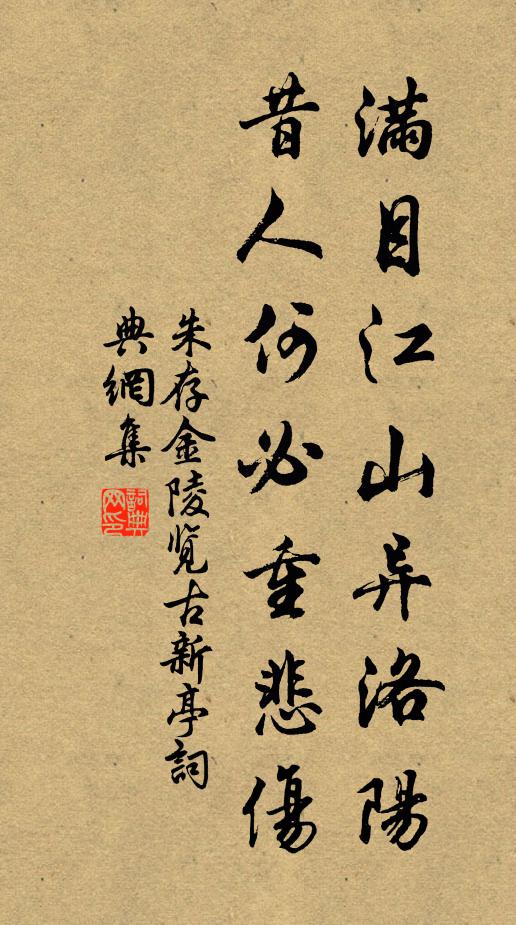 满目江山异洛陽
昔人何必重悲傷
朱存金陵览古新亭詞
典網集
詞典網印